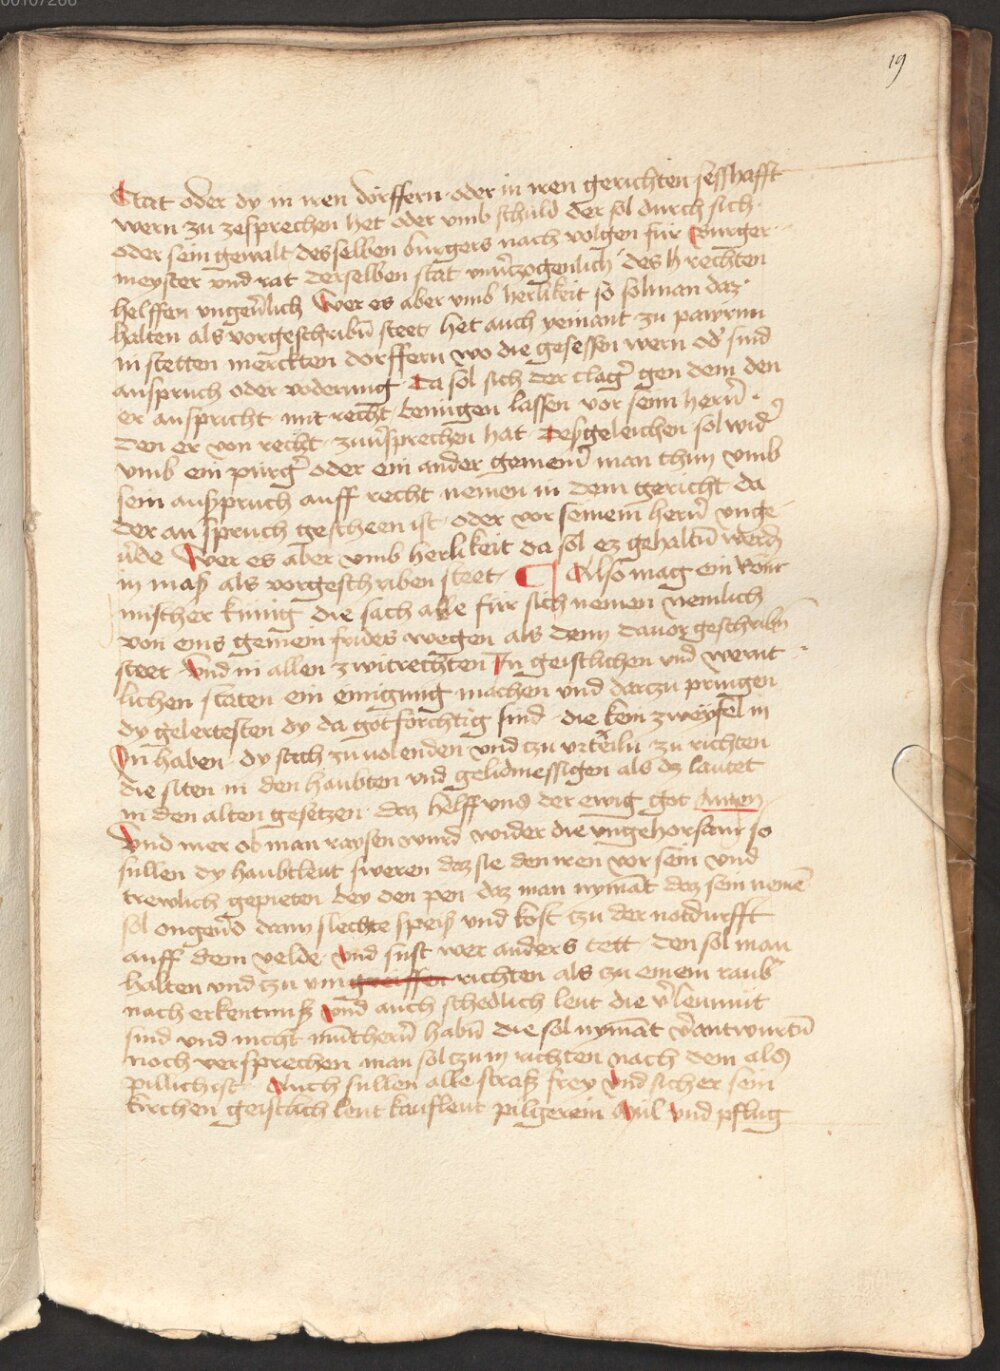 00107266
19
Stat oder dy in iren dörffern oder in iren gerichten sesshafft
wern zu zesprechen het oder vmb schuld der sol durch sich
oder sein gewalt desselben burgers nach volgen für Burger
meyster vnd rat derselben stat vnuerzogenlich des rechten
helffen vngeuerlich Wer es aber vmb herlikeit so sol man daz
halten als vorgeschribn̄ steet het auch yemant zu pawrnn
in stetten merckten dorffern wo die gesessen wern od' sind
anspruch oder voderung Da sol sich der clag' gen dem den
er anspricht mit recht benugen lassen vor seim hern̄
den er von recht zuu'sprechen hat Desgeleichen sol wid'
vmb ein purg' oder ein ander gemein' man thun vmb
sein anspruch auff recht nemen in dem gericht da
der an spruch gescheen ist oder vor seinem hern̄ vnge
u'de Wer es aber vmb herlikeit da sol ez gehaltn̄ werdn̄
in maß als vorgeschriben steet ¶ Also mag ein Röm
mischer kunig die sach alle für sich nemen nemlich
von eins gemein frides wegen als denn dauor geschribn̄
steet Vnd in allen zwitrechten In geistlichen vnd wernt
lichen staten ein einigung machen vnd darczu pringen
dy gelertesten dy da gotforchtig sind die kein zweyfel in
In haben dy sach zu uolenden vnd czu vrteiln zu richten
die siten in den haubten vnd gelidmessigen als dz lautet
in den alten gesetzen daz helff vns der ewig got Amen
Vnd mer ob man raysen wurd wider die vngehorsam so
sullen dy haubtleut sweren daz sie den iren vor sein vnd
trewlich gepieten bey den pen daz man nymāt daz sein neme
sol ongeu'd dann slechte speis vnd kost czu der notdurfft
auff dem velde Vnd sust wer anders tett den sol man
halten vnd czu im greiffen richten als zu einem raub'
nach erkentniß vnd auch schedlich leut die v'leumut
sind vnd nicht mūtherū habn̄ die sol nymāt v'antwurtn̄
noch versprechen man sol czu in richten nach dem als
pillich ist Auch sullen alle straß frey vnd sicher sein
kirchen geistlich leut kaufleut pilgerein Mül vnd pflug